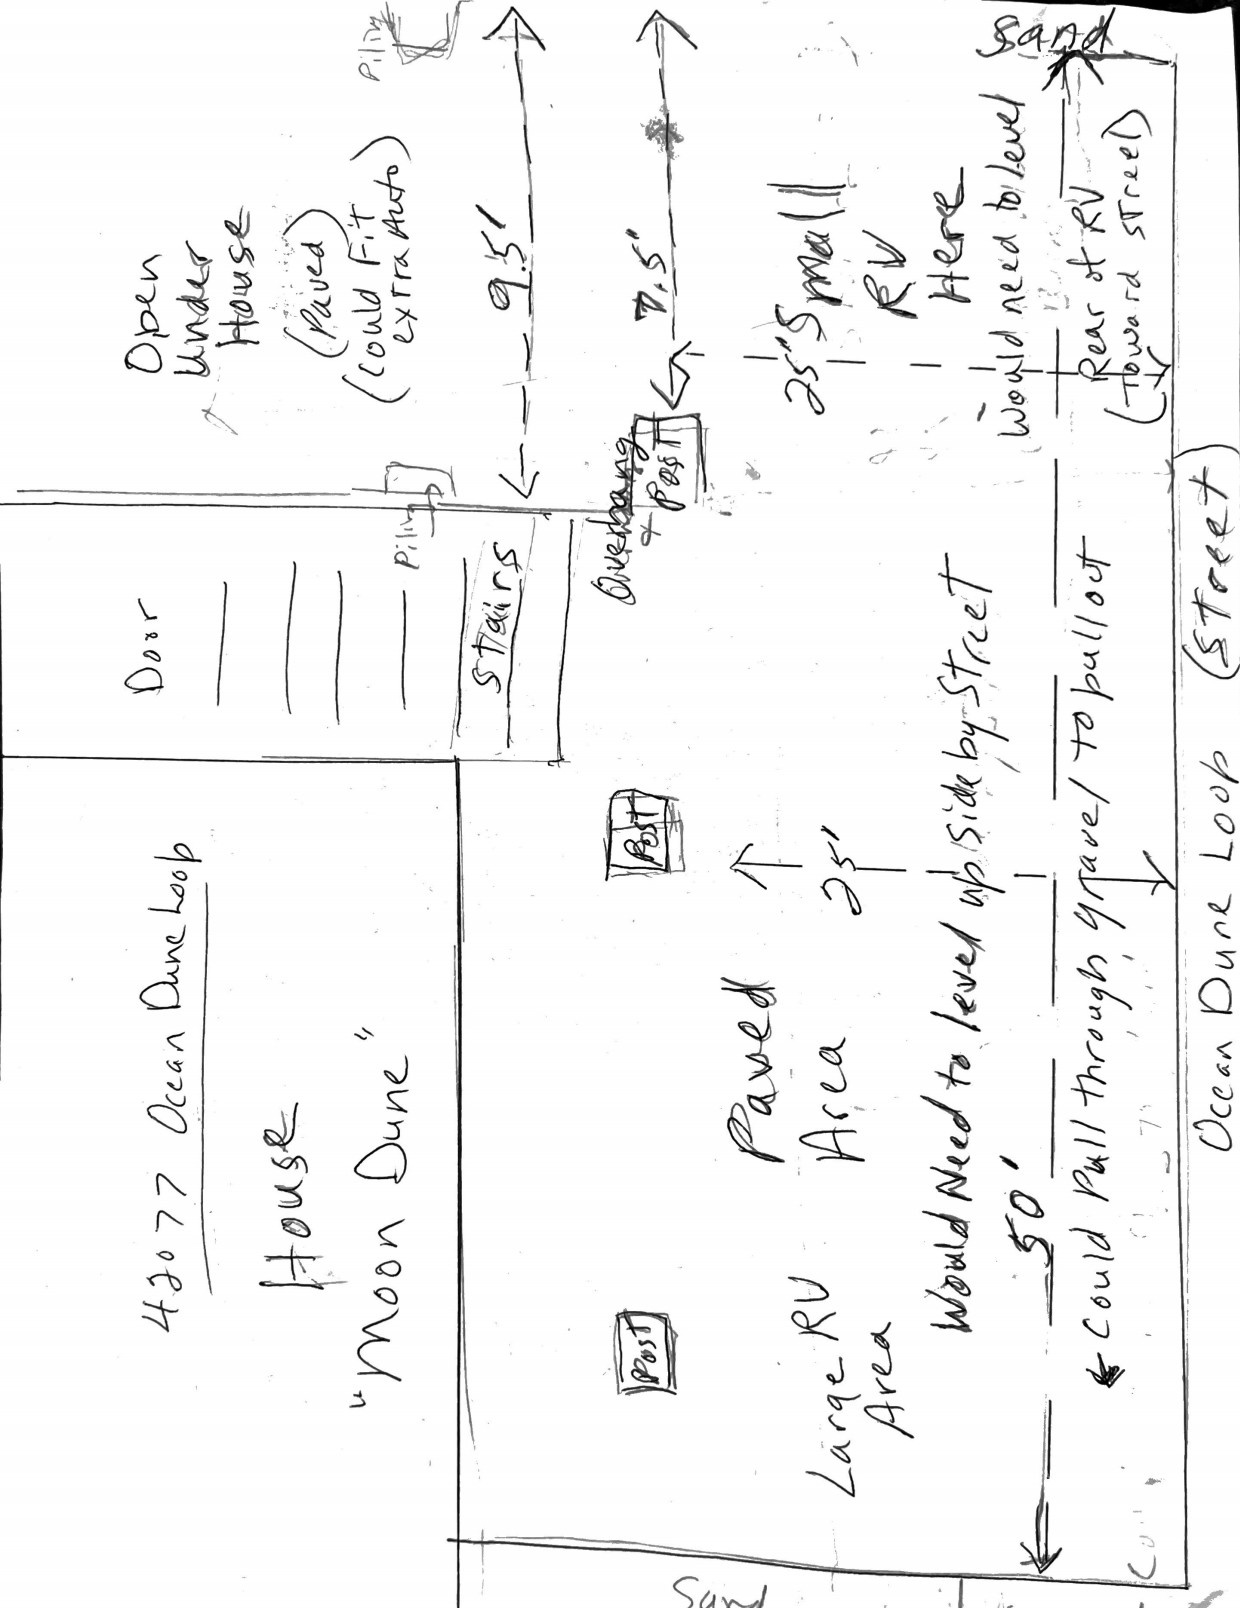 42077 Ocean Dune Loop
House
"Moon Dune"
Door
Stairs
Piling
Open
Under
House
(Paved)
(Could Fit
extra Auto)
Piling
9.5'
7.5"
Overhang
+
Post
Post
Post
Paved
Area
25'
Large RV
Area
Would Need to level up side by street
50'
← Could Pull through gravel to pull out
25'
Small
RV
Here
Would need to level
Rear of RV
(toward street)
Sand
Sand
Ocean Dune Loop (Street)